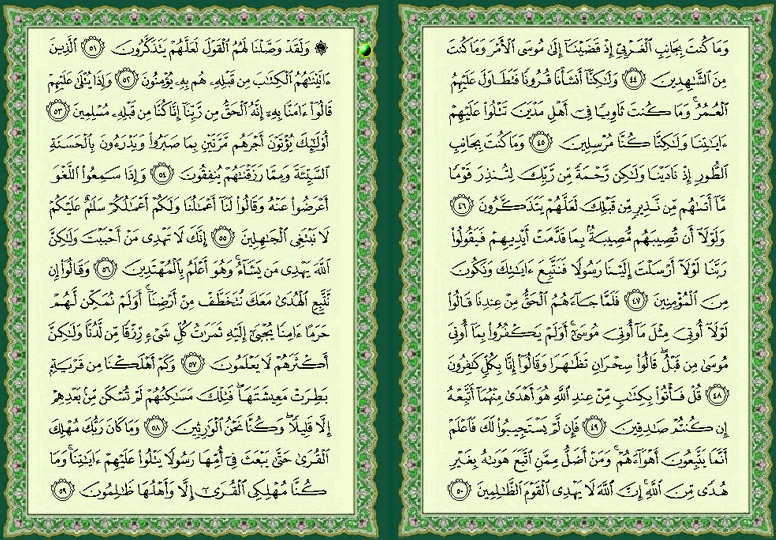 وَمَا كُنتَ بِجَانِبِ ٱلْغَرْبِيِّ إِذْ قَضَيْنَآ إِلَىٰ مُوسَى ٱلْأَمْرَ وَمَا كُنتَ
مِنَ ٱلشَّٰهِدِينَ ٤٤ وَلَٰكِنَّآ أَنشَأْنَا قُرُونًا فَتَطَاوَلَ عَلَيْهِمُ
ٱلْعُمُرُ ۚ وَمَا كُنتَ ثَاوِيًا فِىٓ أَهْلِ مَدْيَنَ تَتْلُوا۟ عَلَيْهِمْ
ءَايَٰتِنَا وَلَٰكِنَّا كُنَّا مُرْسِلِينَ ٤٥ وَمَا كُنتَ بِجَانِبِ
ٱلطُّورِ إِذْ نَادَيْنَا وَلَٰكِن رَّحْمَةً مِّن رَّبِّكَ لِتُنذِرَ قَوْمًا
مَّآ أَتَىٰهُم مِّن نَّذِيرٍ مِّن قَبْلِكَ لَعَلَّهُمْ يَتَذَكَّرُونَ ٤٦
وَلَوْلَآ أَن تُصِيبَهُم مُّصِيبَةٌۢ بِمَا قَدَّمَتْ أَيْدِيهِمْ فَيَقُولُوا۟
رَبَّنَا لَوْلَآ أَرْسَلْتَ إِلَيْنَا رَسُولًا فَنَتَّبِعَ ءَايَٰتِكَ وَنَكُونَ
مِنَ ٱلْمُؤْمِنِينَ ٤٧ فَلَمَّا جَآءَهُمُ ٱلْحَقُّ مِنْ عِندِنَا قَالُوا۟
لَوْلَآ أُوتِىَ مِثْلَ مَآ أُوتِىَ مُوسَىٰٓ ۚ أَوَلَمْ يَكْفُرُوا۟ بِمَآ أُوتِىَ
مُوسَىٰ مِن قَبْلُ ۖ قَالُوا۟ سِحْرَانِ تَظَٰهَرَا وَقَالُوٓا۟ إِنَّا بِكُلٍّ كَٰفِرُونَ
٤٨ قُلْ فَأْتُوا۟ بِكِتَٰبٍ مِّنْ عِندِ ٱللَّهِ هُوَ أَهْدَىٰ مِنْهُمَآ أَتَّبِعْهُ
إِن كُنتُمْ صَٰدِقِينَ ٤٩ فَإِن لَّمْ يَسْتَجِيبُوا۟ لَكَ فَٱعْلَمْ
أَنَّمَا يَتَّبِعُونَ أَهْوَآءَهُمْ ۚ وَمَنْ أَضَلُّ مِمَّنِ ٱتَّبَعَ هَوَىٰهُ بِغَيْرِ
هُدًى مِّنَ ٱللَّهِ ۚ إِنَّ ٱللَّهَ لَا يَهْدِى ٱلْقَوْمَ ٱلظَّٰلِمِينَ ٥٠
۞ وَلَقَدْ وَصَّلْنَا لَهُمُ ٱلْقَوْلَ لَعَلَّهُمْ يَتَذَكَّرُونَ ٥١ ٱلَّذِينَ
ءَاتَيْنَٰهُمُ ٱلْكِتَٰبَ مِن قَبْلِهِۦ هُم بِهِۦ يُؤْمِنُونَ ٥٢ وَإِذَا يُتْلَىٰ عَلَيْهِمْ
قَالُوٓا۟ ءَامَنَّا بِهِۦٓ إِنَّهُ ٱلْحَقُّ مِن رَّبِّنَآ إِنَّا كُنَّا مِن قَبْلِهِۦ مُسْلِمِينَ ٥٣
أُو۟لَٰٓئِكَ يُؤْتَوْنَ أَجْرَهُم مَّرَّتَيْنِ بِمَا صَبَرُوا۟ وَيَدْرَءُونَ بِٱلْحَسَنَةِ
ٱلسَّيِّئَةَ وَمِمَّا رَزَقْنَٰهُمْ يُنفِقُونَ ٥٤ وَإِذَا سَمِعُوا۟ ٱللَّغْوَ
أَعْرَضُوا۟ عَنْهُ وَقَالُوا۟ لَنَآ أَعْمَٰلُنَا وَلَكُمْ أَعْمَٰلُكُمْ سَلَٰمٌ عَلَيْكُمْ
لَا نَبْتَغِى ٱلْجَٰهِلِينَ ٥٥ إِنَّكَ لَا تَهْدِى مَنْ أَحْبَبْتَ وَلَٰكِنَّ
ٱللَّهَ يَهْدِى مَن يَشَآءُ ۚ وَهُوَ أَعْلَمُ بِٱلْمُهْتَدِينَ ٥٦ وَقَالُوٓا۟ إِن
نَّتَّبِعِ ٱلْهُدَىٰ مَعَكَ نُتَخَطَّفْ مِنْ أَرْضِنَآ ۚ أَوَلَمْ نُمَكِّن لَّهُمْ
حَرَمًا ءَامِنًا يُجْبَىٰٓ إِلَيْهِ ثَمَرَٰتُ كُلِّ شَىْءٍ رِّزْقًا مِّن لَّدُنَّا وَلَٰكِنَّ
أَكْثَرَهُمْ لَا يَعْلَمُونَ ٥٧ وَكَمْ أَهْلَكْنَا مِن قَرْيَةٍۭ
بَطِرَتْ مَعِيشَتَهَا ۖ فَتِلْكَ مَسَٰكِنُهُمْ لَمْ تُسْكَن مِّنۢ بَعْدِهِمْ
إِلَّا قَلِيلًا ۖ وَكُنَّا نَحْنُ ٱلْوَٰرِثِينَ ٥٨ وَمَا كَانَ رَبُّكَ مُهْلِكَ
ٱلْقُرَىٰ حَتَّىٰ يَبْعَثَ فِىٓ أُمِّهَا رَسُولًا يَتْلُوا۟ عَلَيْهِمْ ءَايَٰتِنَا ۚ وَمَا
كُنَّا مُهْلِكِى ٱلْقُرَىٰٓ إِلَّا وَأَهْلُهَا ظَٰلِمُونَ ٥٩